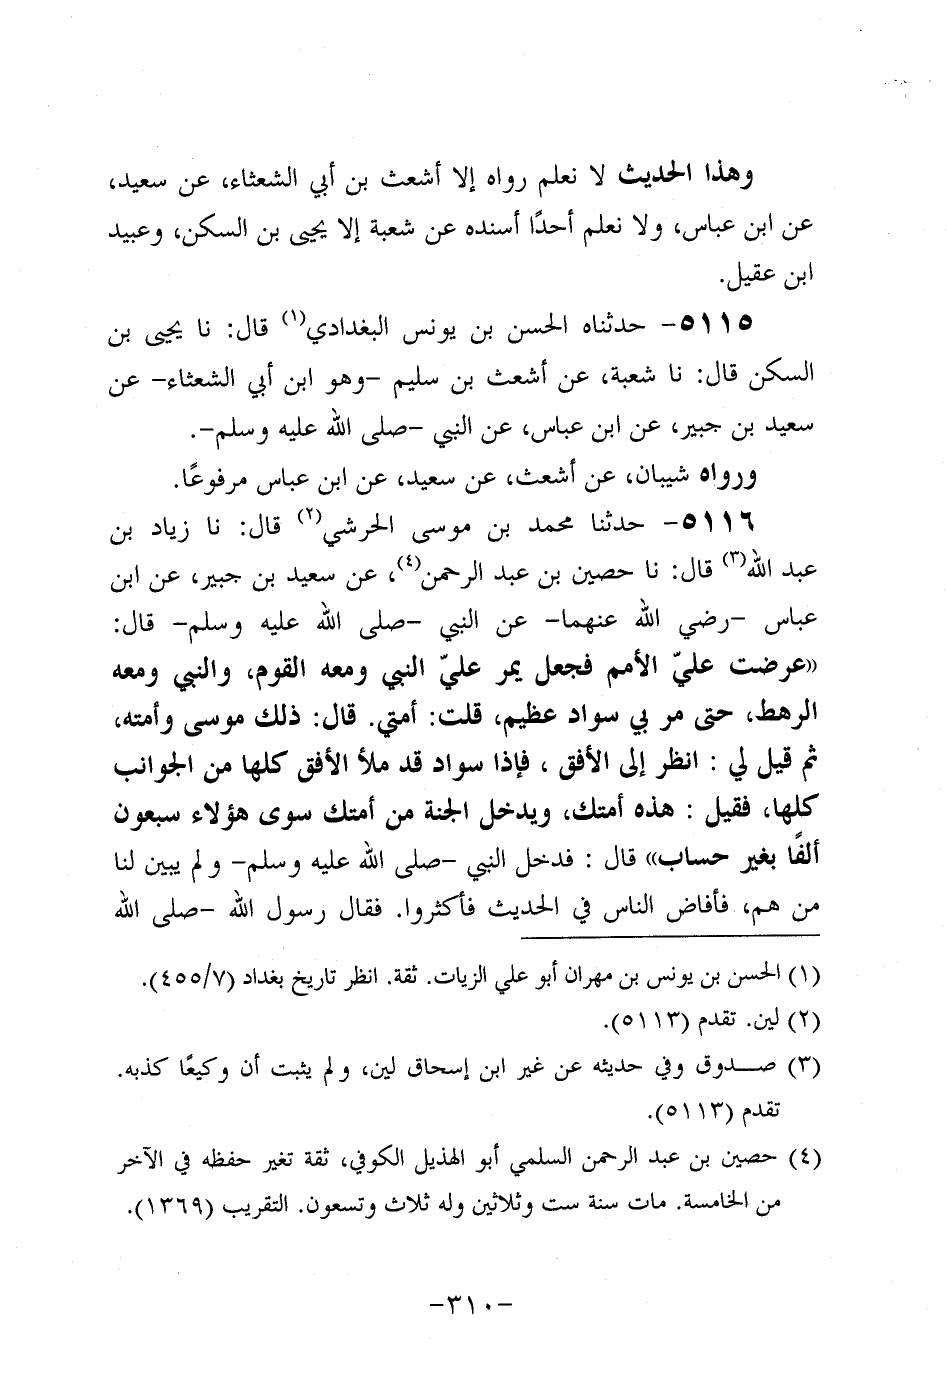 وهذا الحديث لا نعلم رواه إلا أشعث بن أبي الشعثاء، عن سعيد،
عن ابن عباس، ولا نعلم أحدًا أسنده عن شعبة إلا يحيى بن السكن، وعبيد
ابن عقيل.
٥١١٥- حدثناه الحسن بن يونس البغدادي(١) قال: نا يحيى بن
السكن قال: نا شعبة، عن أشعث بن سليم -وهو ابن أبي الشعثاء- عن
سعيد بن جبير، عن ابن عباس، عن النبي -صلى الله عليه وسلم-.
ورواه شيبان، عن أشعث، عن سعيد، عن ابن عباس مرفوعًا.
٥١١٦- حدثنا محمد بن موسى الحرشي(٢) قال: نا زياد بن
عبد الله(٣) قال: نا حصين بن عبد الرحمن(٤)، عن سعيد بن جبير، عن ابن
عباس -رضي الله عنهما- عن النبي -صلى الله عليه وسلم- قال:
«عرضت عليّ الأمم فجعل يمر عليّ النبي ومعه القوم، والنبي ومعه
الرهط، حتى مر بي سواد عظيم، قلت: أمتي. قال: ذلك موسى وأمته،
ثم قيل لي : انظر إلى الأفق ، فإذا سواد قد ملأ الأفق كلها من الجوانب
كلها، فقيل : هذه أمتك، ويدخل الجنة من أمتك سوى هؤلاء سبعون
ألفًا بغير حساب» قال : فدخل النبي -صلى الله عليه وسلم- ولم يبين لنا
من هم، فأفاض الناس في الحديث فأكثروا. فقال رسول الله -صلى الله
(١) الحسن بن يونس بن مهران أبو علي الزيات. ثقة. انظر تاريخ بغداد (٤٥٥/٧).
(٢) لين. تقدم (٥١١٣).
(٣) صدوق وفي حديثه عن غير ابن إسحاق لين، ولم يثبت أن وكيعًا كذبه.
تقدم (٥١١٣).
(٤) حصين بن عبد الرحمن السلمي أبو الهذيل الكوفي، ثقة تغير حفظه في الآخر
من الخامسة. مات سنة ست وثلاثين وله ثلاث وتسعون. التقريب (١٣٦٩).
-٣١٠-